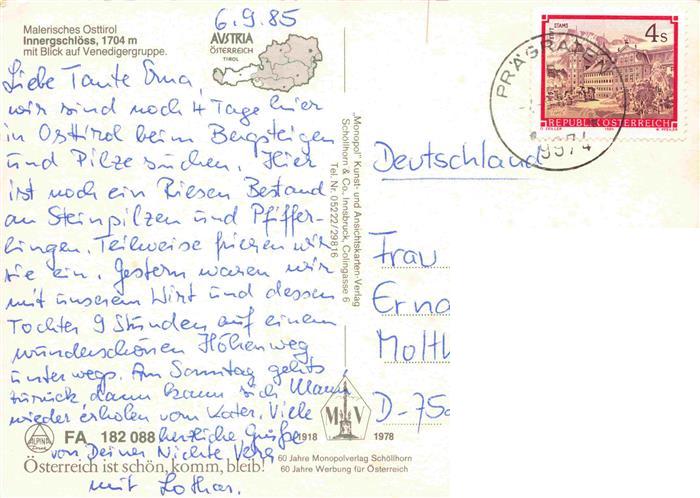 6.9.85
Malerisches Osttirol
Innergschlöss, 1704 m
mit Blick auf Venedigergruppe.
AUSTRIA
ÖSTERREICH
TIROL
Liebe Tante Erna,
wir sind noch 4 Tage hier
in Osttirol beim Bergsteigen
und Pilze suchen. Hier
ist noch ein Riesen Bestand
an Steinpilzen und Pfiffer-
lingen. Teilweise frieren wir
sie ein. Gestern waren wir
mit unserem Wirt und dessen
Tochter 9 Stunden auf einem
wunderschönen Höhenweg
unterwegs. Am Sonntag gehts
zurück dann kann sich Manni
wieder erholen vom Kater. Viele
herzliche Grüße
von Deiner Nichte Vera
mit Lothar.
ALPINA
FA 182 088
Österreich ist schön, komm, bleib!
"Monopol" Kunst- und Ansichtskarten-Verlag
Schöllhorn & Co., Innsbruck, Colingasse 6
Tel. Nr. 05222/29816
MV
1918 1978
60 Jahre Monopolverlag Schöllhorn
60 Jahre Werbung für Österreich
STAMS
4 S
REPUBLIK ÖSTERREICH
PRÄGRATEN
9974
Deutschland
Frau
Erna
Molt
D-750